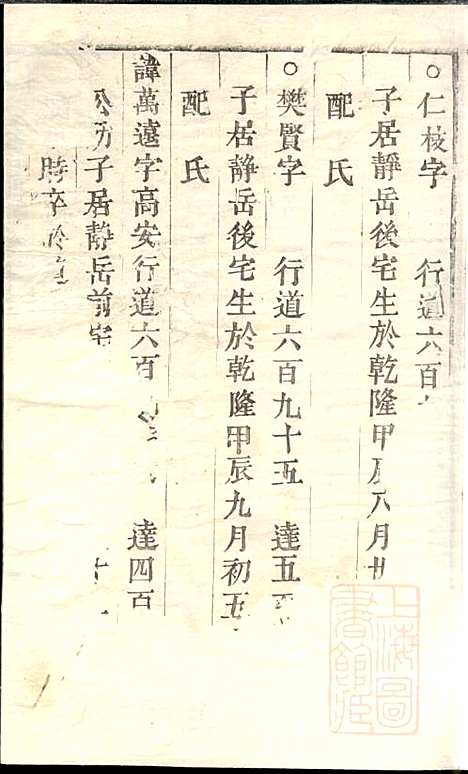 ○仁枝字 行道六百
子居靜岳後宅生於乾隆甲辰八月廿
配 氏
○樊賢字 行道六百九十五 達五百
子居靜岳後宅生於乾隆甲辰九月初五
配 氏
諱萬遠字高安行道六百 達四百
公 子居靜岳前宅 十
時卒於
上海圖書館